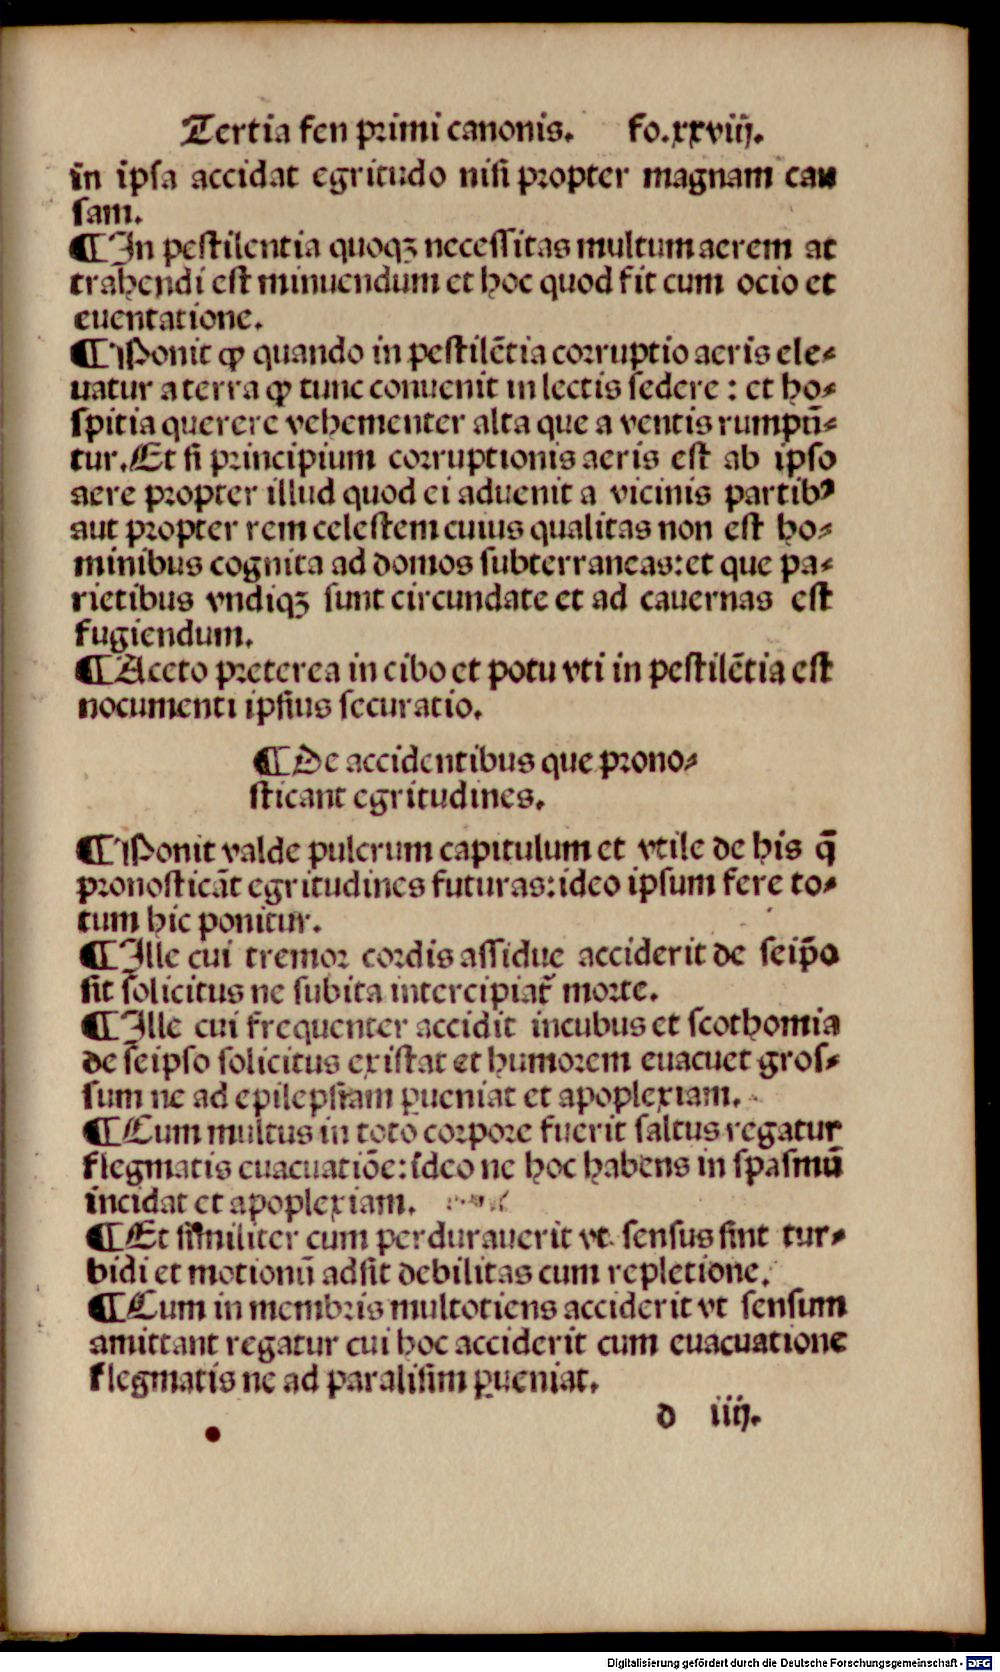 Tertia fen primi canonis. fo.xxviij.
in ipsa accidat egritudo nisi propter magnam cau
sam.
¶ In pestilentia quoqꝫ necessitas multum aerem at
trahendi est minuendum et hoc quod fit cum ocio et
euentatione.
¶ Ponit ꝙ quando in pestilẽtia corruptio aeris ele⸗
uatur a terra ꝙ tunc conuenit in lectis sedere : et ho⸗
spitia querere vehementer alta que a ventis rumpũ⸗
tur. Et si principium corruptionis aeris est ab ipso
aere propter illud quod ei aduenit a vicinis partibꝰ
aut propter rem celestem cuius qualitas non est ho⸗
minibus cognita ad domos subterraneas: et que pa⸗
rietibus vndiqꝫ sunt circundate et ad cauernas est
fugiendum.
¶ Aceto preterea in cibo et potu vti in pestilẽtia est
nocumenti ipsius securatio.
¶ De accidentibus que prono⸗
sticant egritudines.
¶ Ponit valde pulcrum capitulum et vtile de his q̃
pronosticãt egritudines futuras: ideo ipsum fere to⸗
tum hic ponitur.
¶ Ille cui tremor cordis assidue acciderit de seip̃o
sit solicitus ne subita intercipiat̃ morte.
¶ Ille cui frequenter accidit incubus et scothomia
de seipso solicitus existat et humorem euacuet gros⸗
sum ne ad epilepsiam ꝑueniat et apoplexiam.
¶ Cum multus in toto corpore fuerit saltus regatur
flegmatis euacuatiõe: ideo ne hoc habens in spasmũ
incidat et apoplexiam.
¶ Et similiter cum perdurauerit vt sensus sint tur⸗
bidi et motionũ adsit debilitas cum repletione.
¶ Cum in membris multotiens acciderit vt sensum
amittant regatur cui hoc acciderit cum euacuatione
flegmatis ne ad paralisim ꝑueniat.
d iiij.
Digitalisierung gefördert durch die Deutsche Forschungsgemeinschaft - DFG